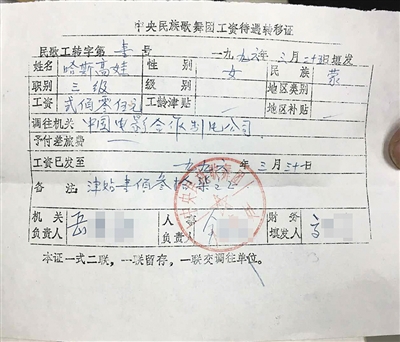 中央民族歌舞团工资待遇转移证
民歌工转字第 号 一九九 年 三月 三十日填发
姓名 哈斯高娃 性别 女 民族 蒙
职别 三级 级别 地区类别
工资 贰佰零伍元 工龄津贴 地区补贴
调往机关 中国电影合作制片公司
予付差旅费
工资已发至 一九九 年 三月三十日
备注: 津贴壹佰叁拾柒元
机关负责人 岳 人事负责人 财务填发人
本证一式二联,一联留存,一联交调往单位。